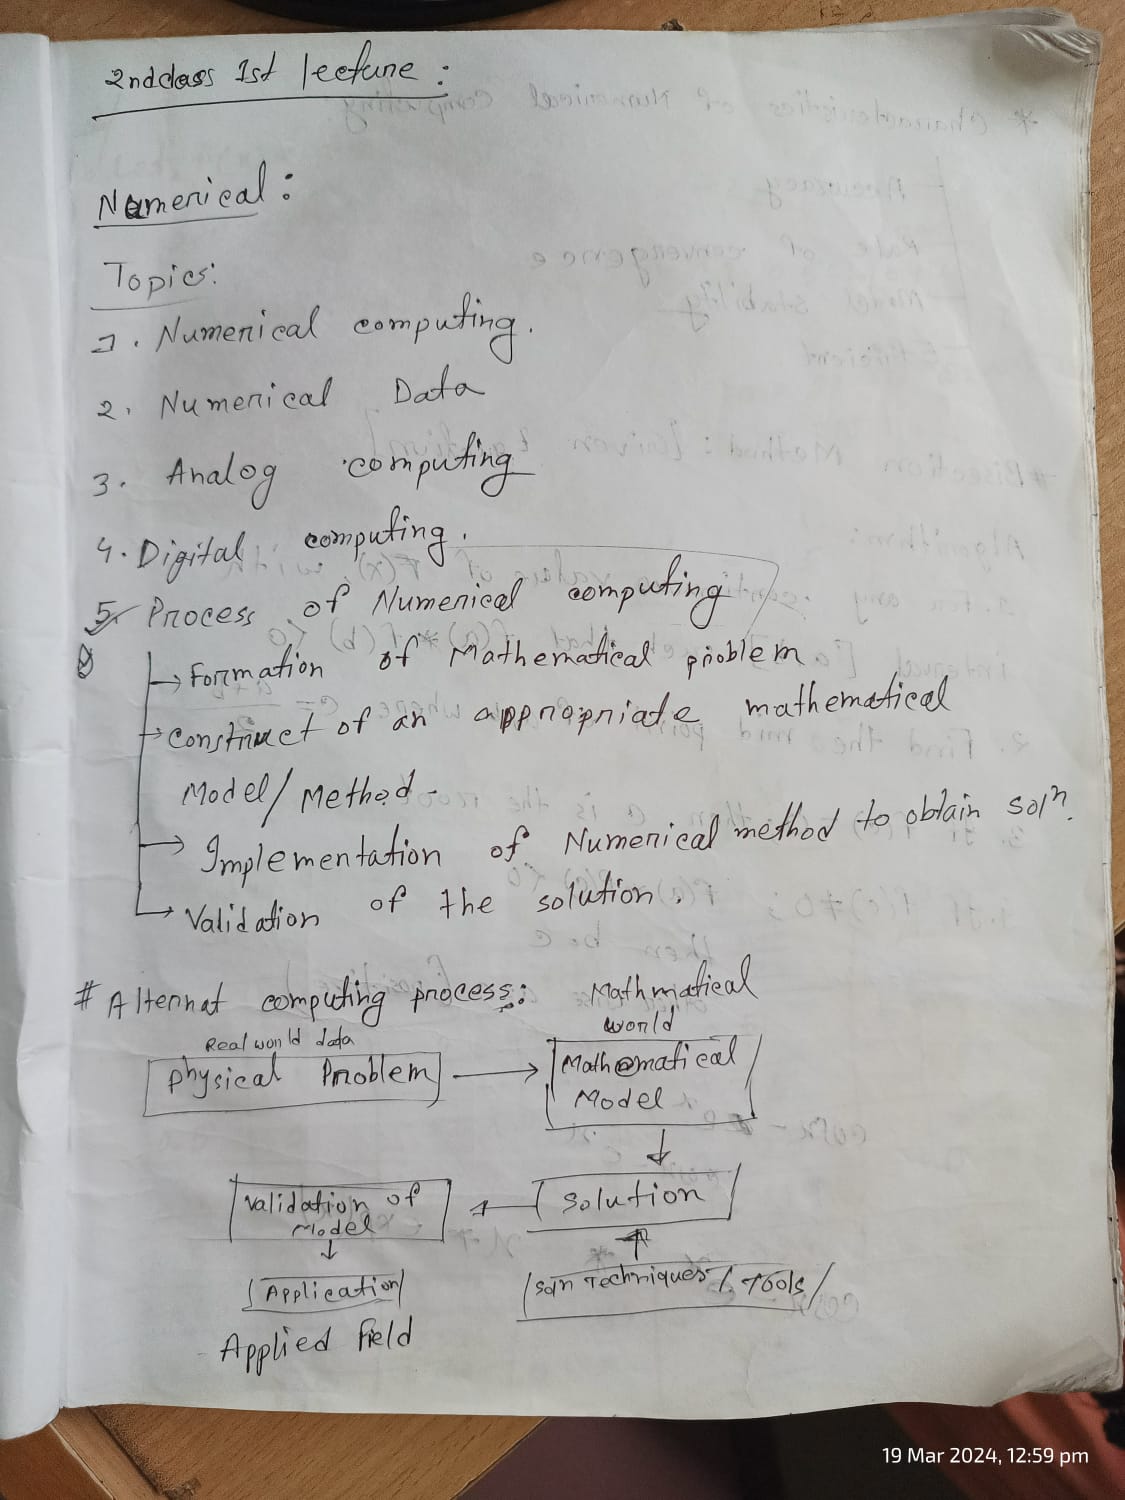 2nd class 1st lecture:
Numerical:
Topics:
1. Numerical computing.
2. Numerical Data
3. Analog computing
4. Digital computing.
5. Process of Numerical computing
→ Formation of Mathematical problem
→ Construct of an appropriate mathematical
Model/Method -
→ Implementation of Numerical method to obtain solⁿ.
→ Validation of the solution.
# Alternat computing process:
Real world data
Physical Problem
→
Mathmatical
world
Mathematical
Model
↓
Solution
←
Validation of
Model
↑
Soln Techniques / Tools
↓
Application
Applied field
19 Mar 2024, 12:59 pm